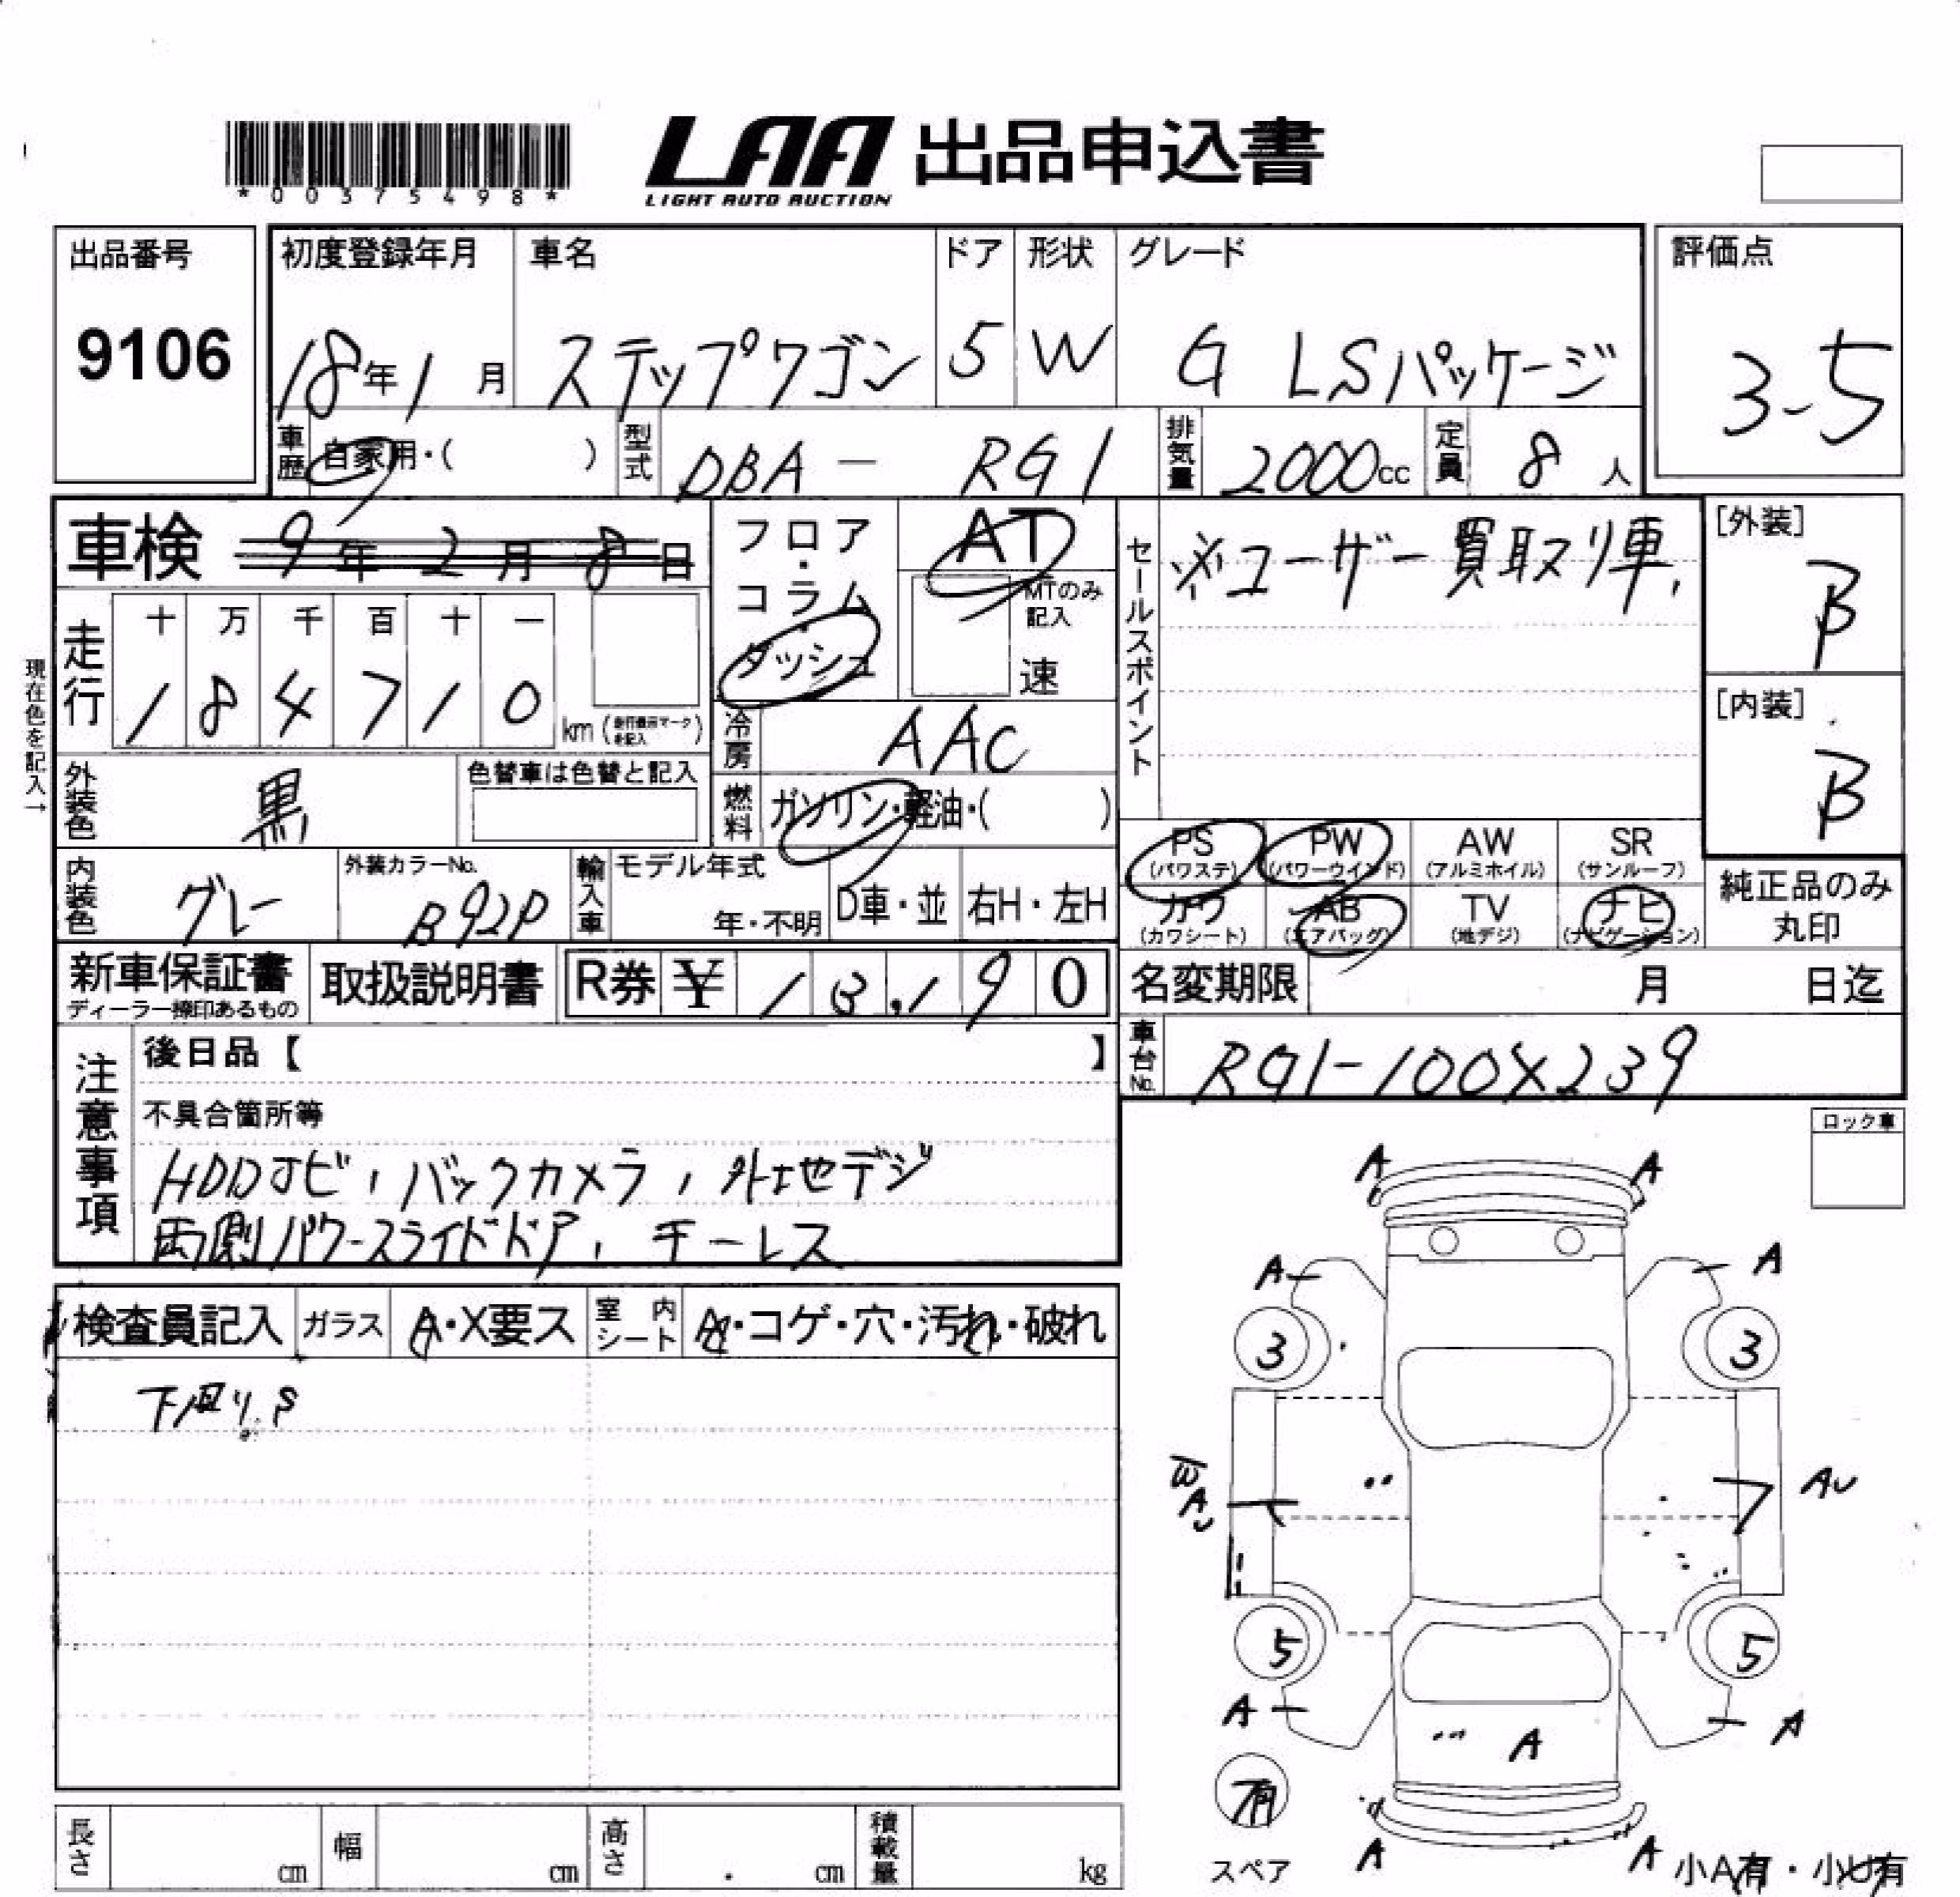 *00375498*
LAA 出品申込書
LIGHT AUTO AUCTION
出品番号
9106
初度登録年月
18年1月
車名
ステップワゴン
ドア
5
形状
W
グレード
G LSパッケージ
評価点
3-5
車歴 自家用・( )
型式 DBA - RG1
排気量 2000cc
定員 8人
車検 9年2月8日
フロア・コラム・ダッシュ
AT
MTのみ記入
速
セールスポイント
※ユーザー買取り車
[外装]
B
[内装]
B
現在色を記入→
走行
十 万 千 百 十 一
1 8 4 7 1 0 km (走行表示マークを記入)
冷房 AAC
外装色 黒
色替車は色替と記入
燃料 ガソリン・軽油・( )
内装色 グレー
外装カラーNo.
B92P
輸入車 モデル年式
年・不明
D車・並
右H・左H
PS (パワステ)
PW (パワーウインド)
AW (アルミホイル)
SR (サンルーフ)
カワ (カワシート)
AB (エアバッグ)
TV (地デジ)
ナビ (ナビゲーション)
純正品のみ丸印
新車保証書
ディーラー捺印あるもの
取扱説明書
R券 ¥ 13,190
名変期限 月 日迄
車台No. RG1-100X239
注意事項
後日品【 】
不具合箇所等
HDDナビ, バックカメラ, 外地デジ
両側パワースライドドア, キーレス
ロック車
検査員記入
ガラス A・X要ス
室内シート A・コゲ・穴・汚れ・破れ
下廻り.S
A A
A A
3 3
W
A
AU
5 5
A A
A
有
スペア
A A
小A有・小U有
長さ cm
幅 cm
高さ . cm
積載量 kg